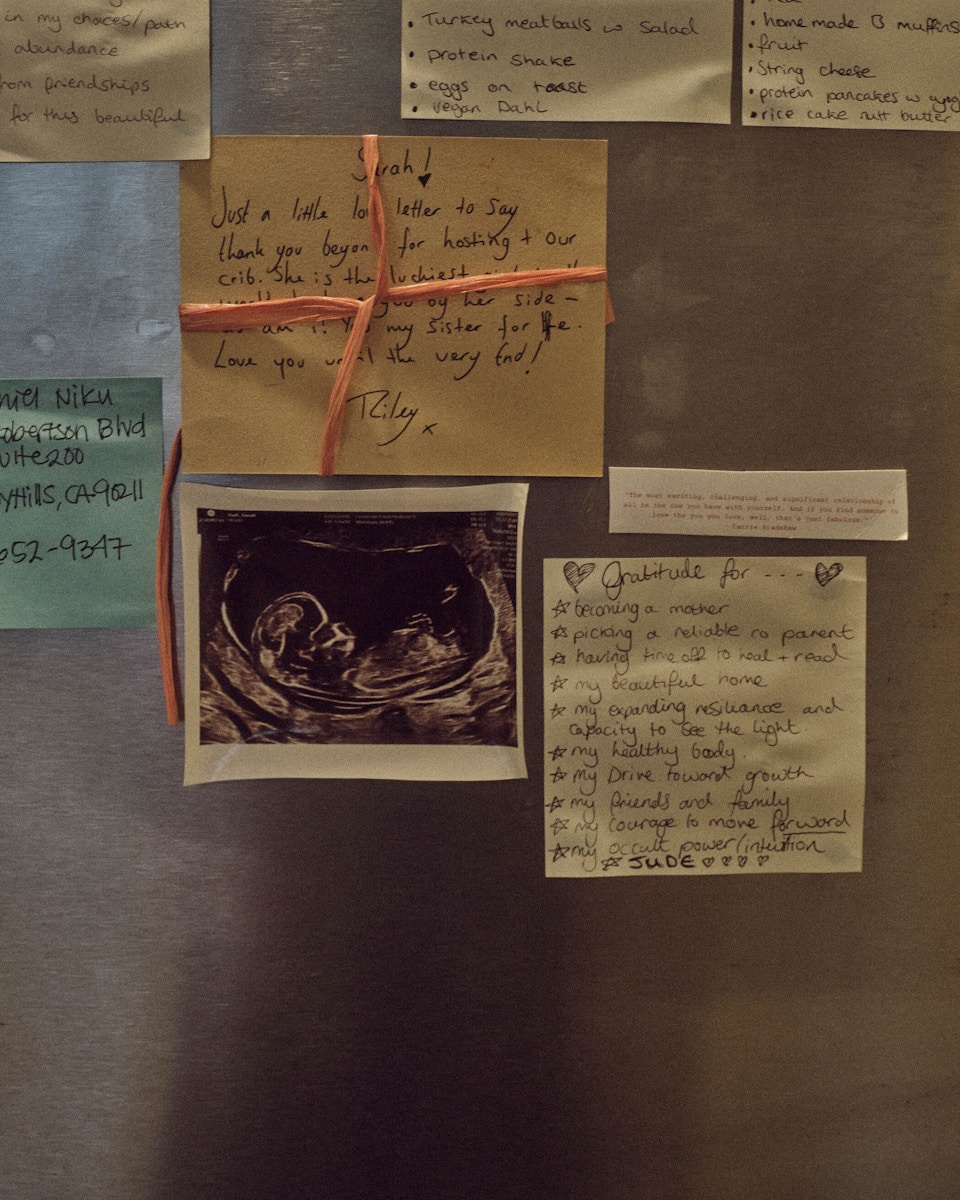 in my choices/path
abundance
from friendships
for this beautiful
• Turkey meatballs w salad
• protein shake
• eggs on toast
• vegan Dahl
• home made B muffins
• fruit
• String cheese
• protein pancakes w
• rice cake nutt butter
Sarah!
Just a little love letter to say
thank you beyond for hosting + our
crib. She is the luckiest
you by her side –
as am i! You my sister for life.
Love you until the very End!
Riley x
Niku
Robertson Blvd
Suite 200
Hills, CA 90211
652-9347
"The most exciting, challenging, and significant relationship of
all is the one you have with yourself. And if you find someone to
love the you you love, well, that's just fabulous."
Carrie Bradshaw
Gratitude for ---
☆ becoming a mother
☆ picking a reliable co parent
☆ having time off to heal + read
☆ my beautiful home
☆ my expanding resiliance and
capacity to see the light
☆ my healthy body.
☆ my Drive toward growth
☆ my friends and family
☆ my courage to move forward
☆ my occult power/intuition
☆ JUDE ♡♡♡♡